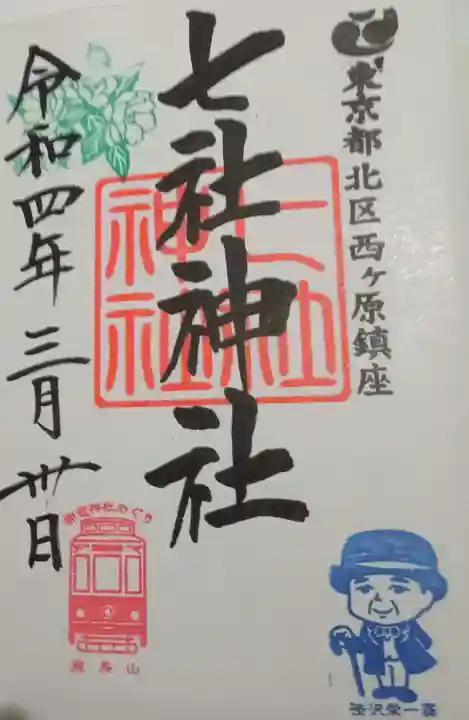 東京都北区西ヶ原鎮座
七社神社
七社神社
令和四年三月卅日
飛鳥山
渋沢栄一翁